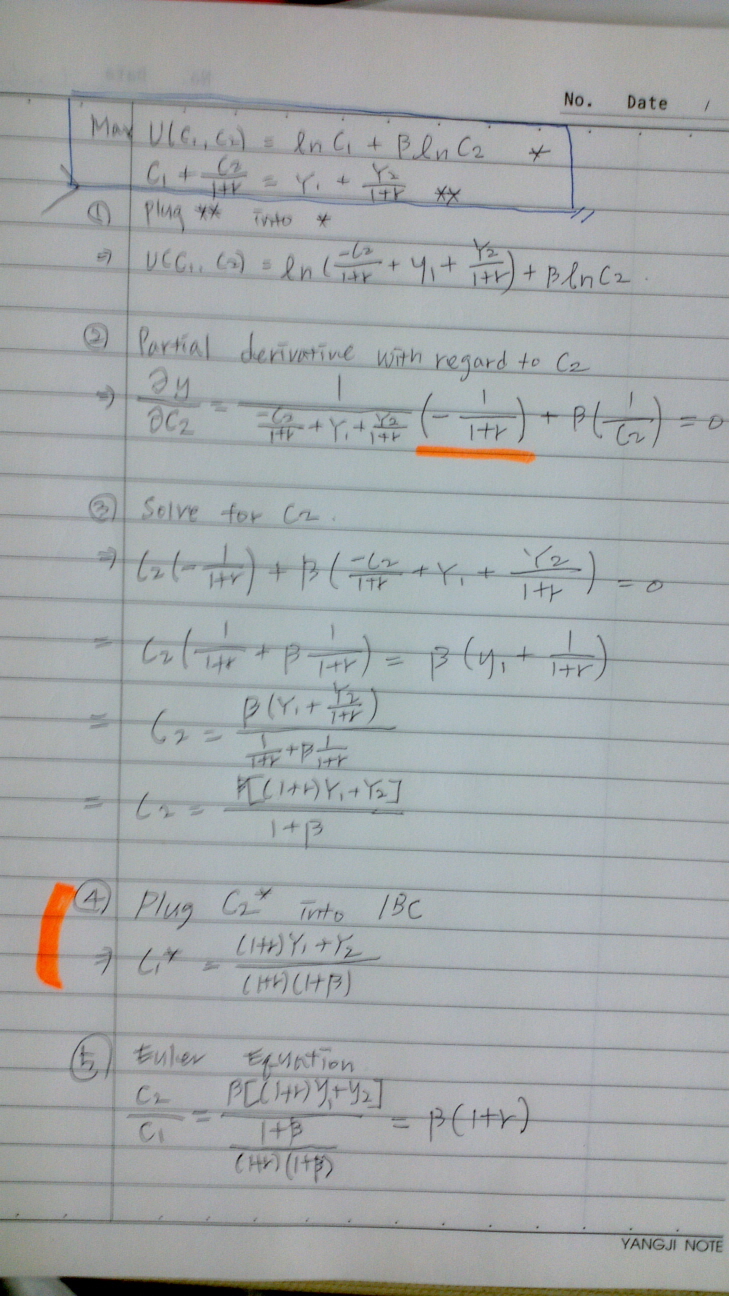 No. Date /
Max U(C₁, C₂) = ln C₁ + β ln C₂ *
C₁ + C₂/(1+r) = Y₁ + Y₂/(1+r) **
① Plug ** into *
⇒ U(C₁, C₂) = ln(-C₂/(1+r) + y₁ + Y₂/(1+r)) + β ln C₂.
② Partial derivative with regard to C₂
⇒ ∂y/∂C₂ = 1/(-C₂/(1+r) + Y₁ + Y₂/(1+r)) (- 1/(1+r)) + β(1/C₂) = 0
③ Solve for C₂.
⇒ C₂(-1/(1+r)) + β(-C₂/(1+r) + Y₁ + Y₂/(1+r)) = 0
= C₂(1/(1+r) + β 1/(1+r)) = β(y₁ + 1/(1+r))
= C₂ = β(Y₁ + Y₂/(1+r)) / (1/(1+r) + β 1/(1+r))
= C₂ = β[(1+r)Y₁+Y₂] / (1+β)
④ Plug C₂* into IBC
⇒ C₁* = ((1+r)Y₁+Y₂) / ((1+r)(1+β))
⑤ Euler Equation
C₂/C₁ = β[(1+r)Y₁+y₂] / ((1+β) / ((1+r)(1+β))) = β(1+r)
YANGJI NOTE